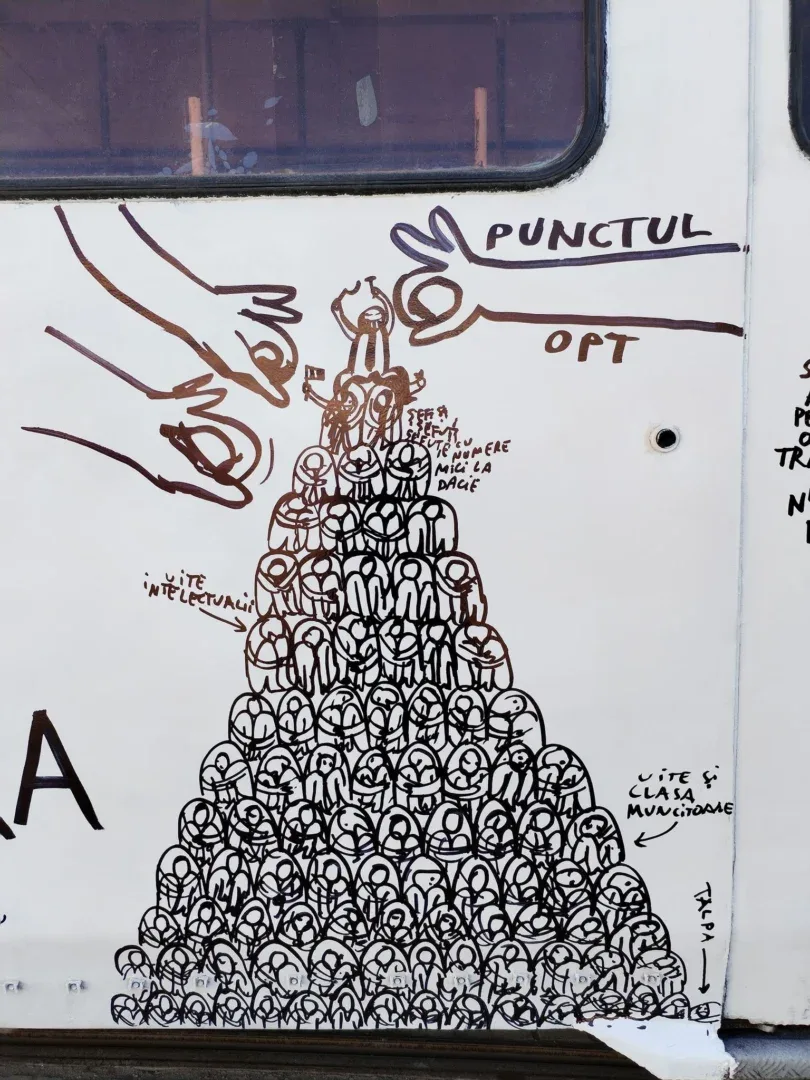 PUNCTUL
OPT
ȘEFI
ȘEFUȚI
CU
NUMERE
MICI LA
DACIE
UITE
INTELECTUALII
UITE ȘI
CLASA
MUNCITOARE
TALPA
A